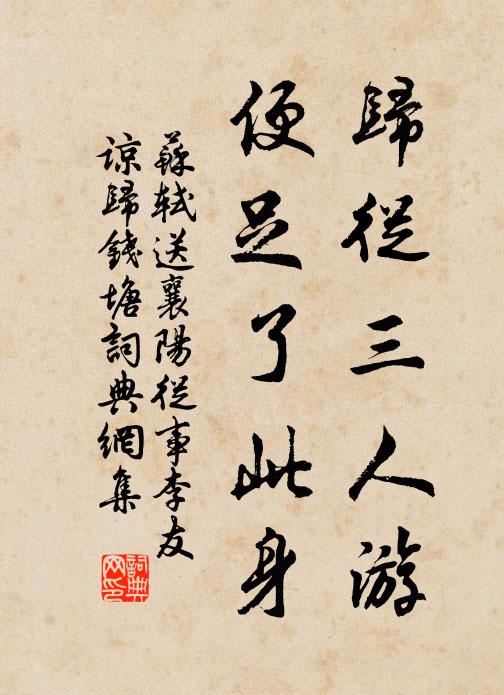 歸從三人游
便足了此身
蘇軾送襄陽從事李友
諒歸錢塘詞典網集
詞典
网印